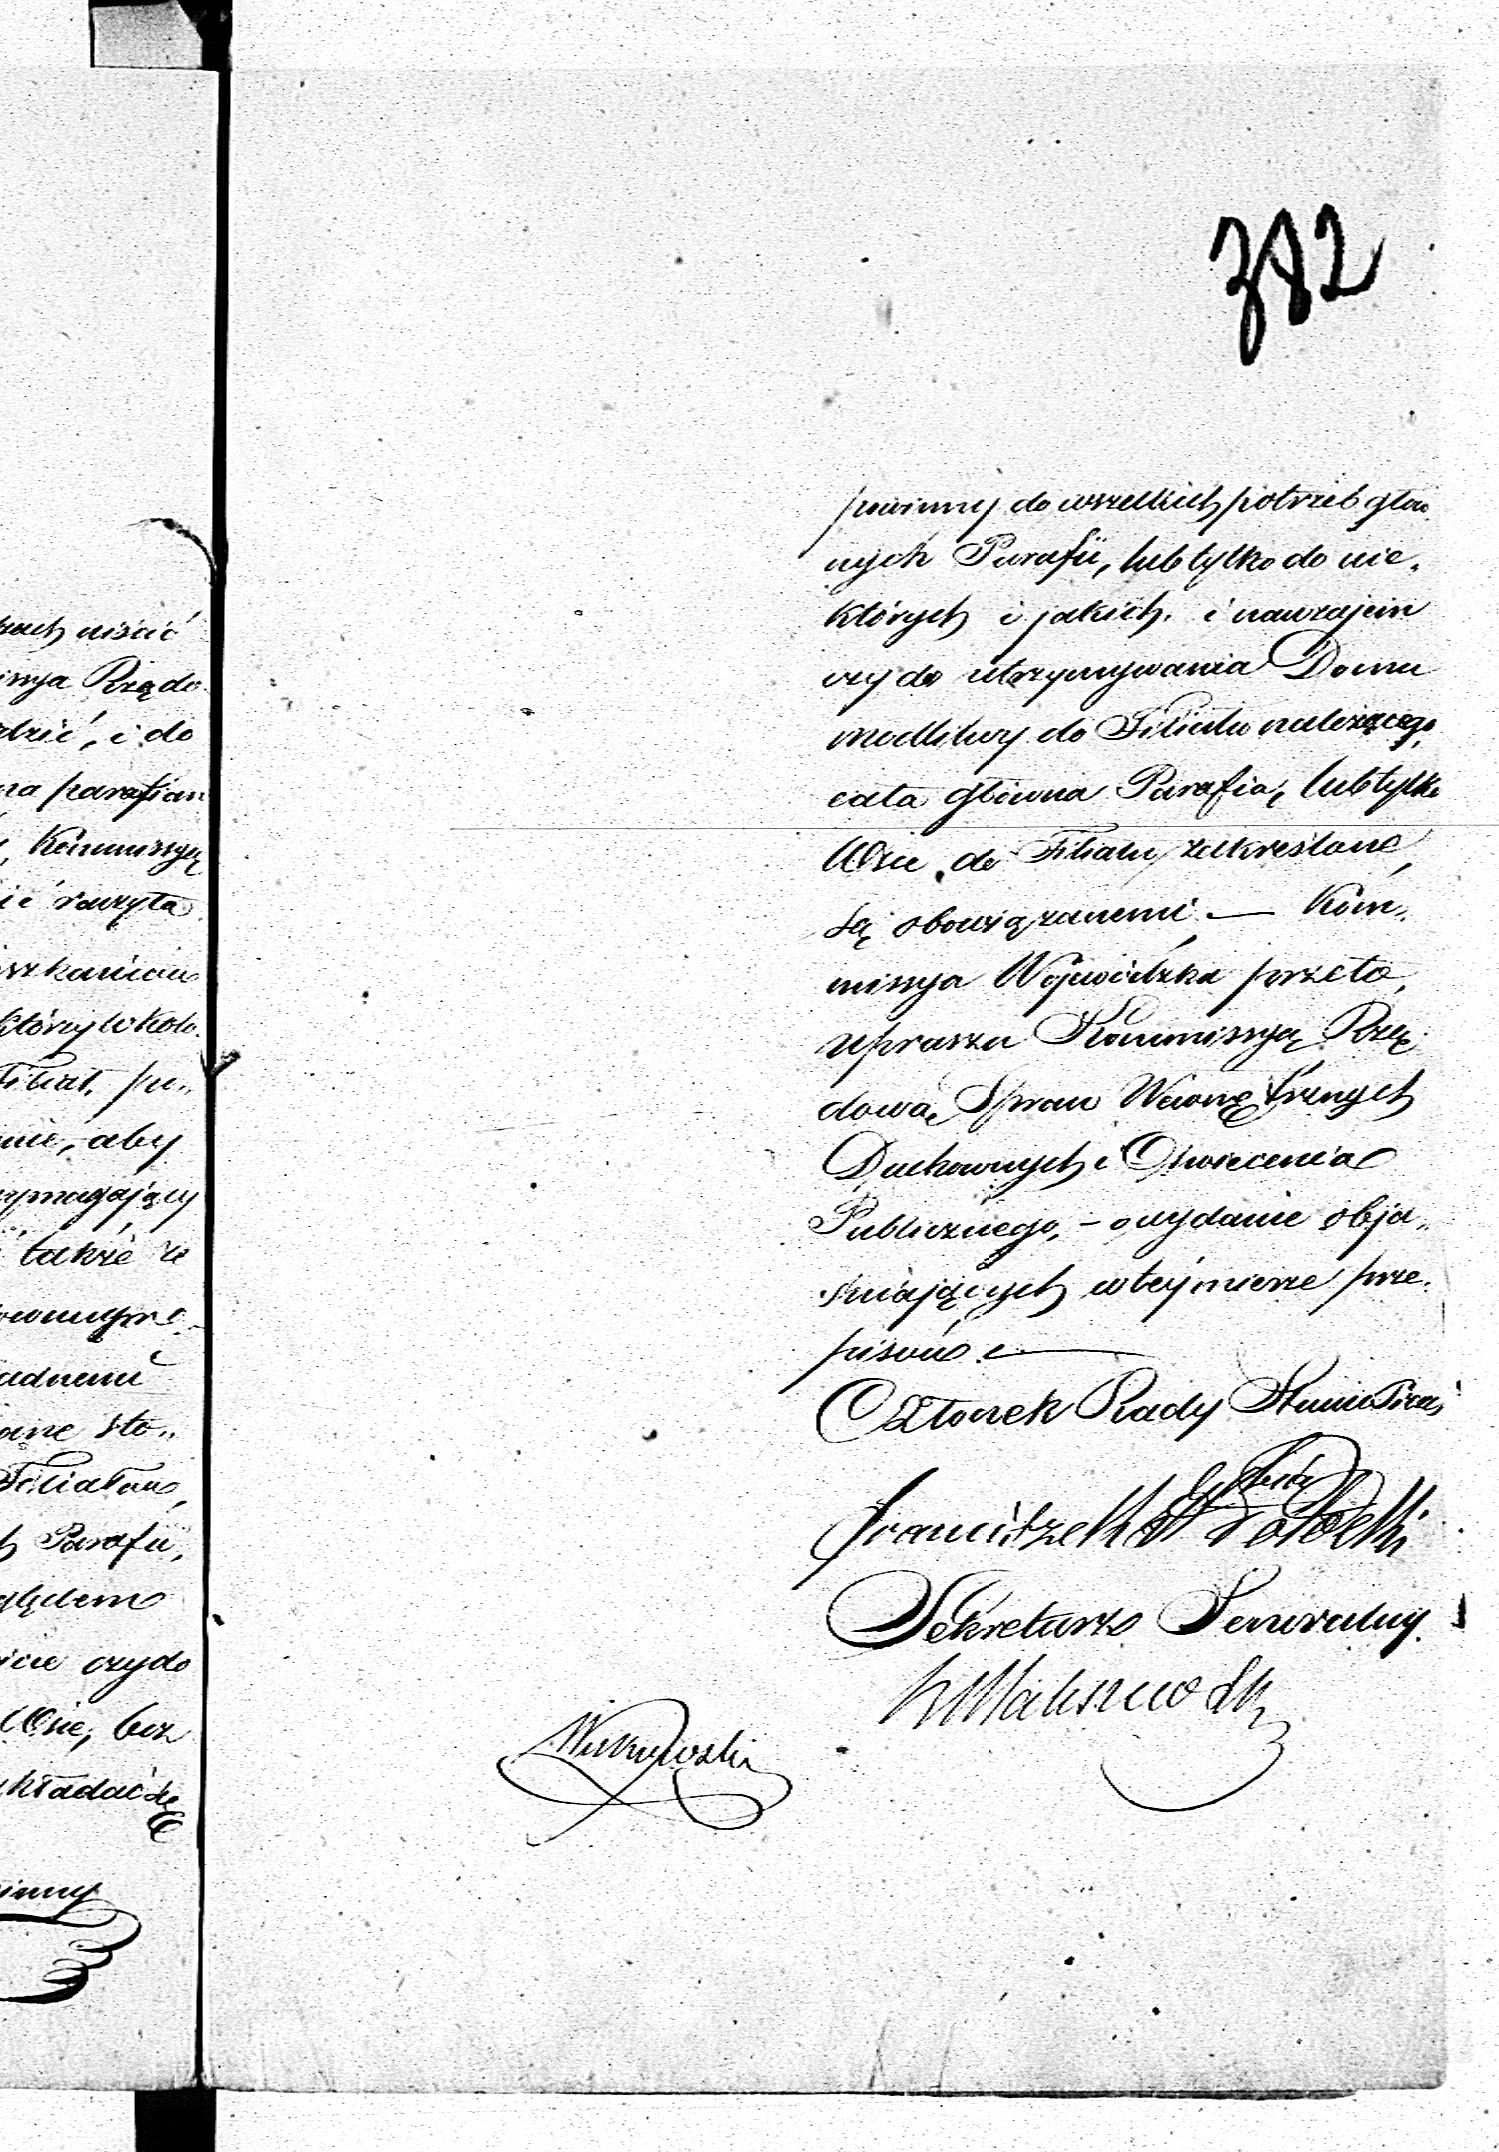 382
rach uiścić
missya Rządo
dzić, i do
na parafian
Kommissyę
ie raczyła
szkańców
którzy w koło
Filiał, po„
nie, aby
wymagający
także ze
adnemu
ane sto„
Filiałów,
h Parafii,
ględem
icie czy do
Wsie, bez
kładać się
winny
powinny do wszelkich potrzeb głów
nych Parafii, lub tylko do nie„
których i jakich. i nawzajem
czy do utrzymywania Domu
modlitwy do Filiału należącego,
cała główna Parafia, lub tylko
Wsie do Filiału zakreślone,
są obowiązanemi. — Kom„
missya Wojewódzka przeto,
uprasza Kommissyą Rzą„
dową Spraw Wewnętrznych
Duchownych i Oświecenia
Publicznego, – o wydanie obja„
śniających w tej mierze prze„
pisów. —
Członek Rady Stanu Prezes
Franciszek Potocki
Sekretarz Generalny